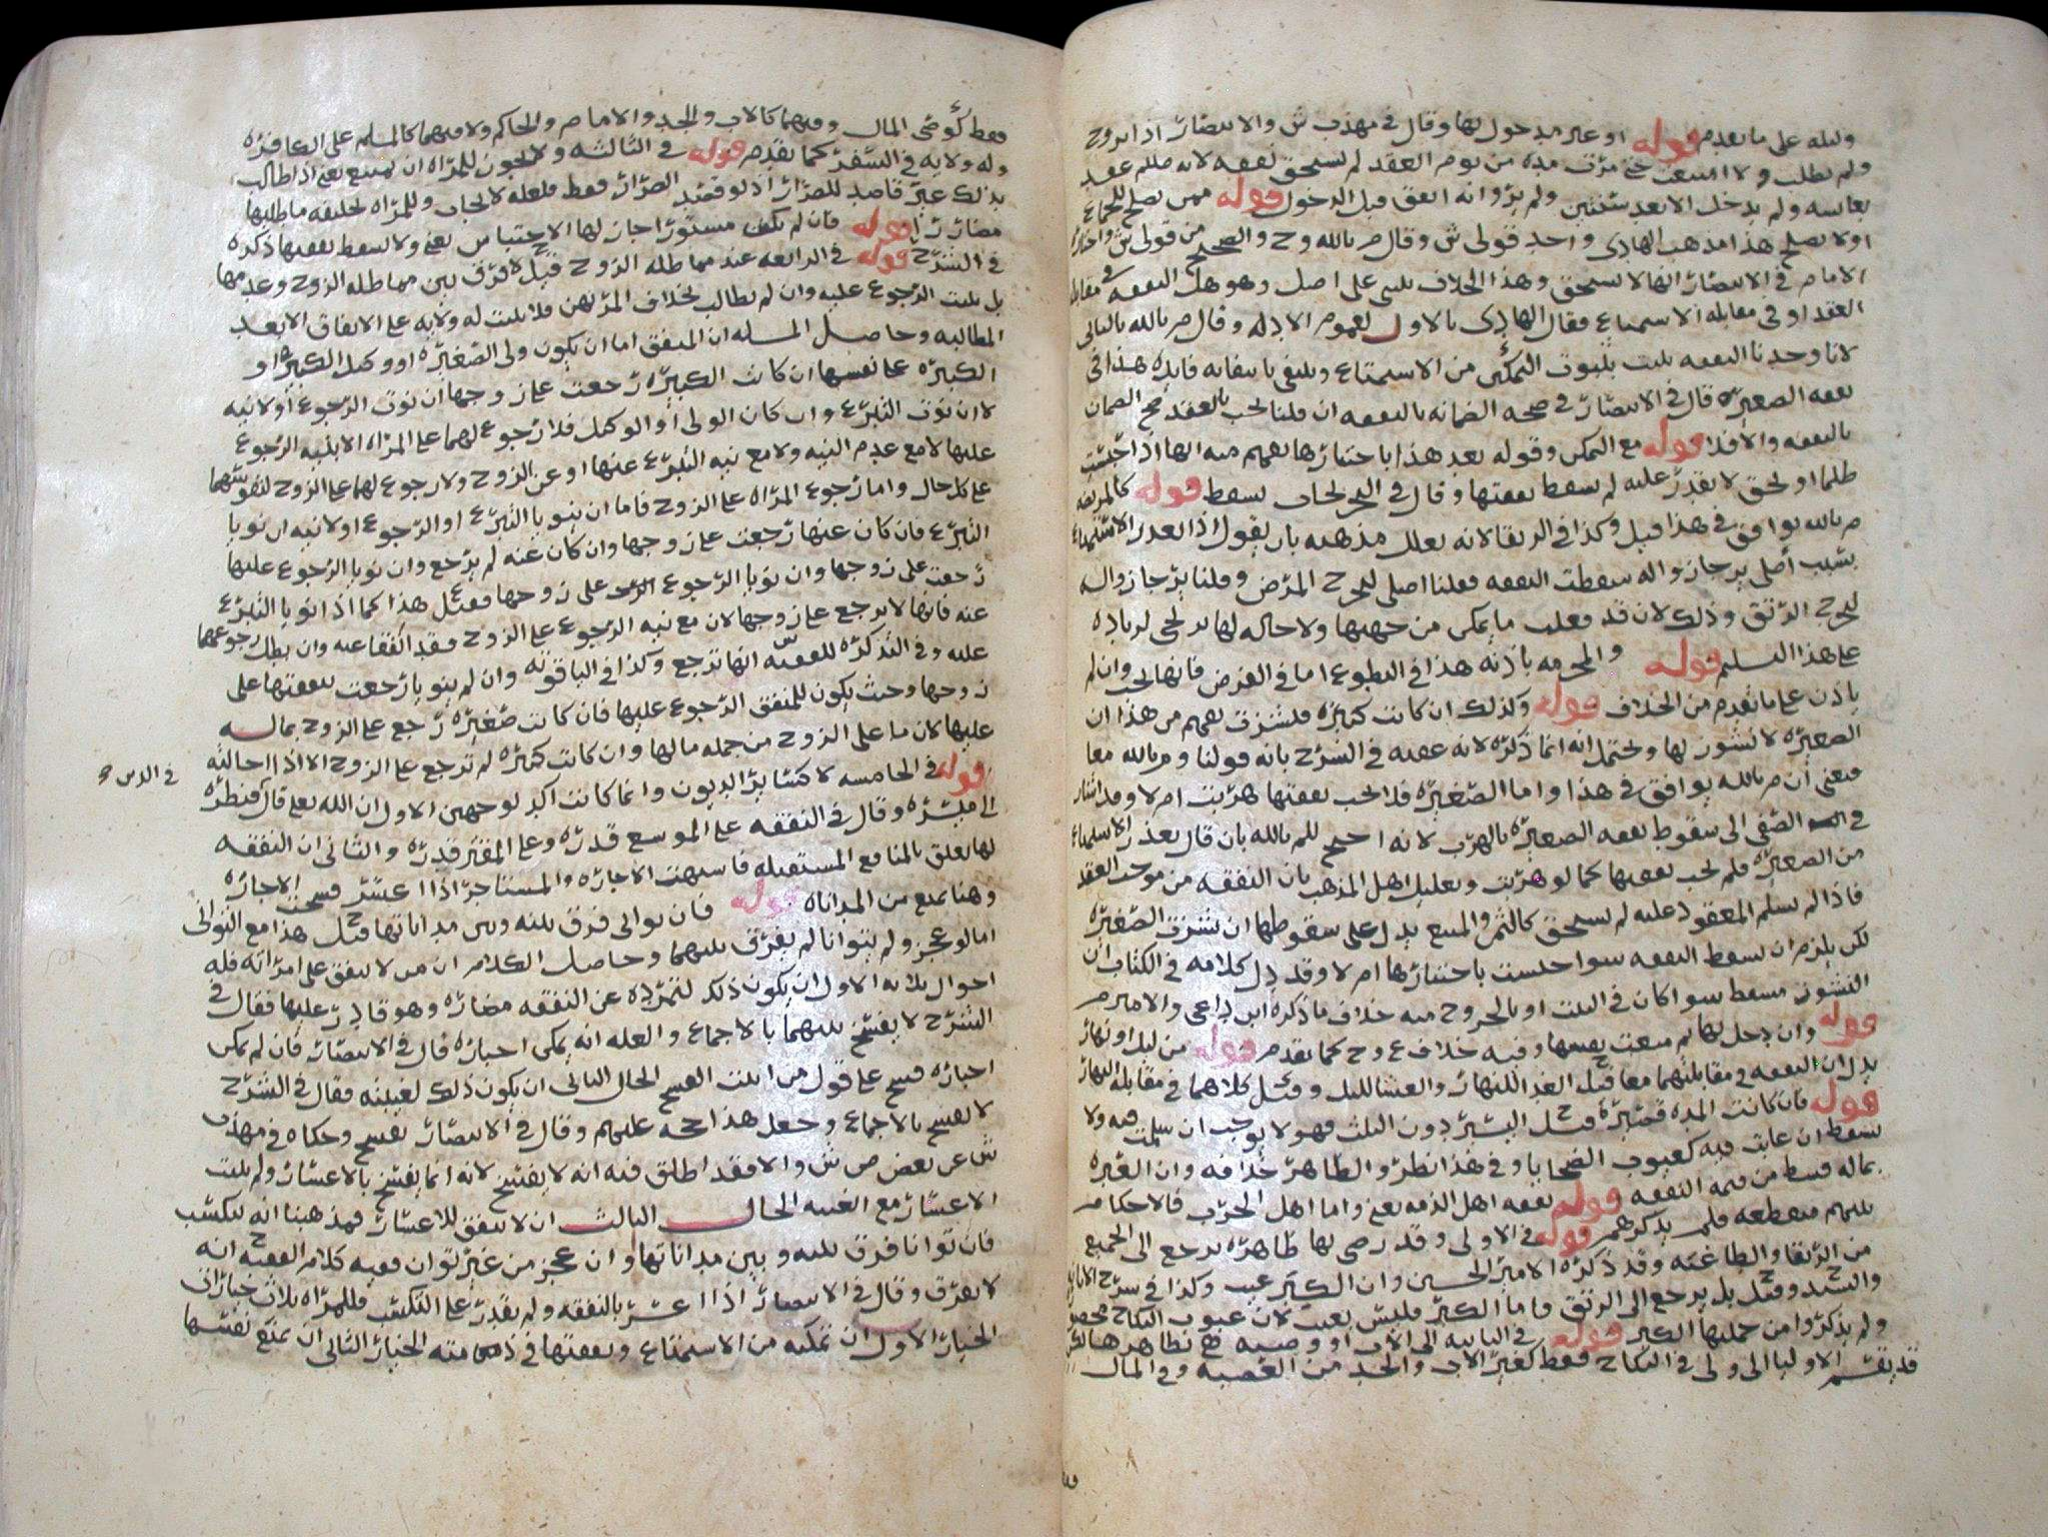 وليله على ما تقدم قوله او غير مدخول بها وقال في مهذب ش والانتصار اذا تزوج
ولم يطلب ولا امتنعت حتى مرت مده من يوم العقد لم تستحق نفقه لانه صللم عقد
بعايشه ولم يدخل الا بعد سنتين ولم يروا انه انفق قبل الدخول قوله ممن يصلح للجماع
اولا يصلح هذا مذهب الهادي واحد قولي ش وقال م بالله وح والصحيح من قولي ش واختاره
الامام في الانتصار انها لا تستحق وهذا الخلاف يبنى على اصل وهو هل النفقه في مقابله
العقد او في مقابله الاستمتاع فقال الهادي بالاول لعموم الادله وقال م بالله بالثاني
لانا وجدنا النفقه تثبت بثبوت التمكن من الاستمتاع وتنتفي بانتفائه فايده هذا في
نفقه الصغيره قال في الانتصار في صحه الضمانه بالنفقه ان قلنا تجب بالعقد صح الضمان
بالنفقه والا فلا قوله مع التمكن وقوله بعد هذا باختيارها يفهم منه انها اذا حبست
ظلما او لحق لا يقدر عليه لم تسقط نفقتها وقال في البحر لحاب يسقط قوله كالمريضه
م بالله يوافق في هذا قيل وكذا في الرتقا لانه يعلل مذهبه بان يقول اذا تعذر الاستمتاع
بسبب اصلي يرجا زواله سقطت النفقه فقلنا اصلي ليخرج المرض وقلنا يرجا زواله
ليخرج الرتق وذلك لان قد فعلت ما يمكن من جهتها ولا حاله لها ترتجى لزياده
على هذا التسليم قوله والمحرمه باذنه هذا في التطوع اما في الفرض فانها تجب وان لم
ياذن على ما تقدم من الخلاف قوله وكذلك ان كانت كبيره فنشزت يفهم من هذا ان
الصغيره لا نشوز لها ويحتمل انه انما ذكره لانه عقبه في الشرح بانه قولنا وم بالله معا
فمعنى ان م بالله يوافق في هذا واما الصغيره فلا تجب نفقتها هربت ام لا وقد اشار
في الصفي الى سقوط نفقه الصغيره بالهرب لانه احتج للم بالله بان قال تعذر الاستمتاع
من الصغيره فلم تجب نفقتها كما لو هربت وتعليل اهل المذهب بان النفقه من موجب العقد
فاذا لم يسلم المعقود عليه لم تستحق كالثمن والمبيع يدل على سقوطها ان نشزت الصغيره
لكن يلزم ان تسقط النفقه سوا حبست باختيارها ام لا وقد دل كلامه في الكتاب ان
النشوز مسقط سوا كان في البيت او بالخروج منه خلاف ما ذكره ابن داعي والامير م
قوله وان دخل بها ثم منعت نفسها وفيه خلاف ع وح كما تقدم قوله من ليل او نهار
يدل ان النفقه في مقابلتهما معا قيل الغدا للنهار والعشا لليل وقيل كلاهما في مقابله النهار
قوله فان كانت المده قصيره قيل اليسير دون الثلث فهو لا يوجب ان سلمت فيه ولا
تسقط ان غابت فيه كعيوب الضحايا وفي هذا نظر والظاهر خلافه وان العبره
بماله قسط من قيمه النفقه قوله نفقه اهل الذمه يعني واما اهل الحرب فالاحكام
بينهم منقطعه فلم يذكرهم قوله في الاولى وقد رضي بها ظاهره يرجع الى الجميع
من الرتقا والطاغنه وقد ذكره الامير الحسين وان الكبر عيب وكذا في شرح الابانه
والسيد وقيل بل يرجع الى الرتق واما الكبر فليس بعيب لان عيوب النكاح محصوره
ولم يذكروا من جملتها الكبر قوله في الثانيه الى الاب او وصيه
قد يقسم الاوليا الى ولي في النكاح فقط كغير الاب والجد من العصبه وفي المال
فقط كوصي المال وفيهما كالاب والجد والامام والحاكم ولا فيهما كالمسلم على الكافره
وله ولايه في السفر كما تقدم قوله في الثالثه ولا يجوز للمراه ان تمتنع يعني اذا طالب
بذلك غير قاصد للضرار اذ لو قصد الضرار فقط فلعله لا يجاب وللمراه تحليفه ما طلبها
مضاررا قوله فان لم يكن مستورا جاز لها الاحتباس يعني ولا تسقط نفقتها ذكره
في الشرح قوله في الرابعه عند مماطله الزوج قيل لا فرق بين مماطله الزوج وعدمها
بل يثبت الرجوع عليه وان لم يطالب بخلاف المرتهن فلا يثبت له ولايه على الانفاق الا بعد
المطالبه وحاصل المسله ان المنفق اما ان يكون ولي الصغيره او وكيل الكبيره او
الكبيره على نفسها ان كانت الكبيره رجعت على زوجها ان نوت الرجوع او لا نيه
لا ان نوت التبرع وان كان الولي او الوكيل فلا رجوع لهما على المراه الا بنيه الرجوع
عليها لا مع عدم النيه ولا مع نيه التبرع عنها او عن الزوج ولا رجوع لهما على الزوج
على كل حال واما رجوع المراه على الزوج فاما ان ينويا التبرع او الرجوع او لا نيه ان نويا
التبرع فان كان عنها رجعت على زوجها وان كان عنه لم يرجع وان نويا الرجوع عليها
رجعت على زوجها وان نويا الرجوع على زوجها فقيل هذا كما اذا نويا التبرع
عنه فانها لا ترجع على زوجها لان مع نيه الرجوع على الزوج فقد انفقا عنه وان بطل رجوعهما
عليه وفي التذكره للفقيه انها ترجع وكذا في الياقوته وان لم ينويا رجعت بنفقتها على
زوجها وحيث يكون للمنفق الرجوع عليها فان كانت صغيره رجع على الزوج بماله
عليها لان ما على الزوج من جمله مالها وان كانت كبيره لم ترجع على الزوج الا اذا احالته
قوله في الخامسه لا كسائر الديون وانما كانت اكد لوجهين الاول ان الله تعلى قال فنظره
في الدين
الى ميسره وقال في النفقه على الموسع قدره وعلى المقتر قدره والثاني ان النفقه
لها تعلق بالمنافع المستقبله فاشبهت الاجاره والمستاجر اذا اعسر فسخت الاجاره
وهنا تمنع من المداناه قوله فان توانى فرق بينه وبين مداناتها قيل هذا مع التواني
اما لو عجز ولم يتوانا لم يفرق بينهما وحاصل الكلام ان من لا ينفق على امراته فله
احوال ثلاثه الاول ان يكون ذلك لتمرده عن النفقه مضاره وهو قادر عليها فقال في
الشرح لا يفسخ بينهما بالاجماع والعله انه يمكن اجباره قال في الانتصار فان لم يمكن
اجباره فسخ على قول من اثبت الفسخ الحال الثاني ان يكون ذلك لغيبته فقال في الشرح
لا يفسخ بالاجماع وجعل هذا حجه عليهم وقال في الانتصار يفسخ وحكاه في مهذب
ش عن بعض ص ش والا فقد اطلق فيه انه لا يفسخ لانه انما يفسخ بالاعسار ولم يثبت
الاعسار مع الغيبه الحال الثالث ان لا ينفق للاعسار فمذهبنا انه يتكسب
فان توانا فرق بينه وبين مداناتها وان عجز من غير توان ففيه كلام الفقيه انه
لا يفرق وقال في الانتصار اذا اعسر بالنفقه ولم يقدر على التكسب فللمراه ثلاث خيارات
الخيار الاول ان تمكنه من الاستمتاع ونفقتها في ذمته الخيار الثاني ان تمنع نفسها